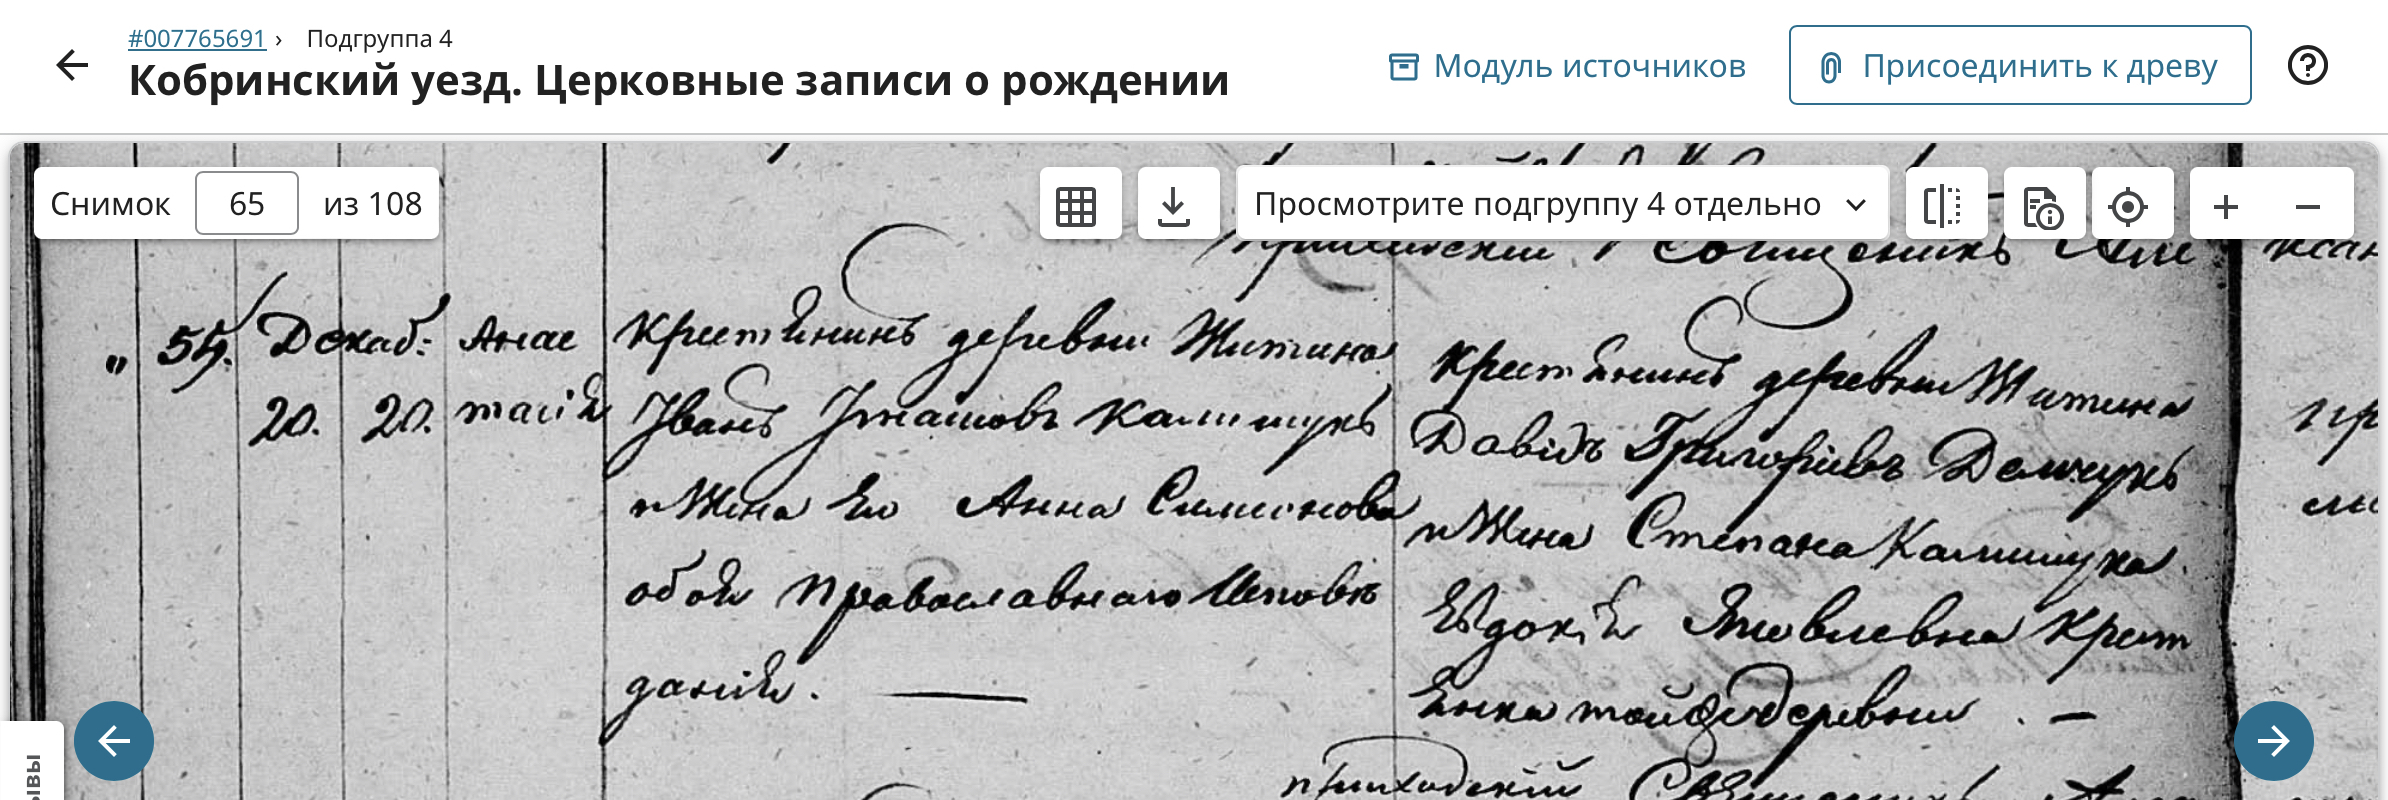 #007765691 › Подгруппа 4
Кобринский уезд. Церковные записи о рождении
Модуль источников
Присоединить к древу
Снимок 65 из 108
Просмотрите подгруппу 4 отдельно
Священникъ Але ксан
„ 54. Декаб: Анас
20. 20. тасія
Крестянинъ деревни Житина
Іванъ Игнатовъ Калишукъ
и Жена Его Анна Симионова
обои православнаго Исповѣ
данія. —
Крестянинъ деревни Житина
Давідъ Григоріевъ Демчукъ
и Жена Степана Калишука
Евдокія Яковлевна Крест
янка той же деревни . —
пр
приходскій Священникъ
ывы